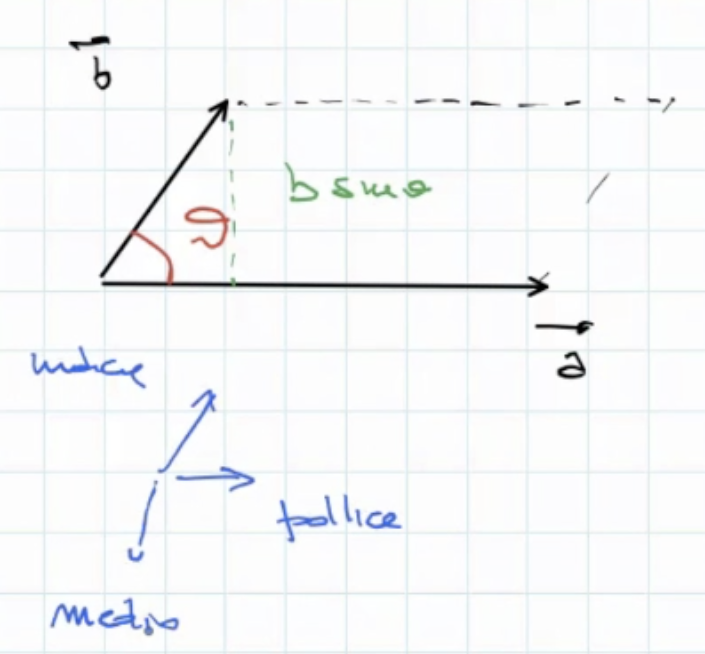 b
b sin θ
θ
a
indice
pollice
medio